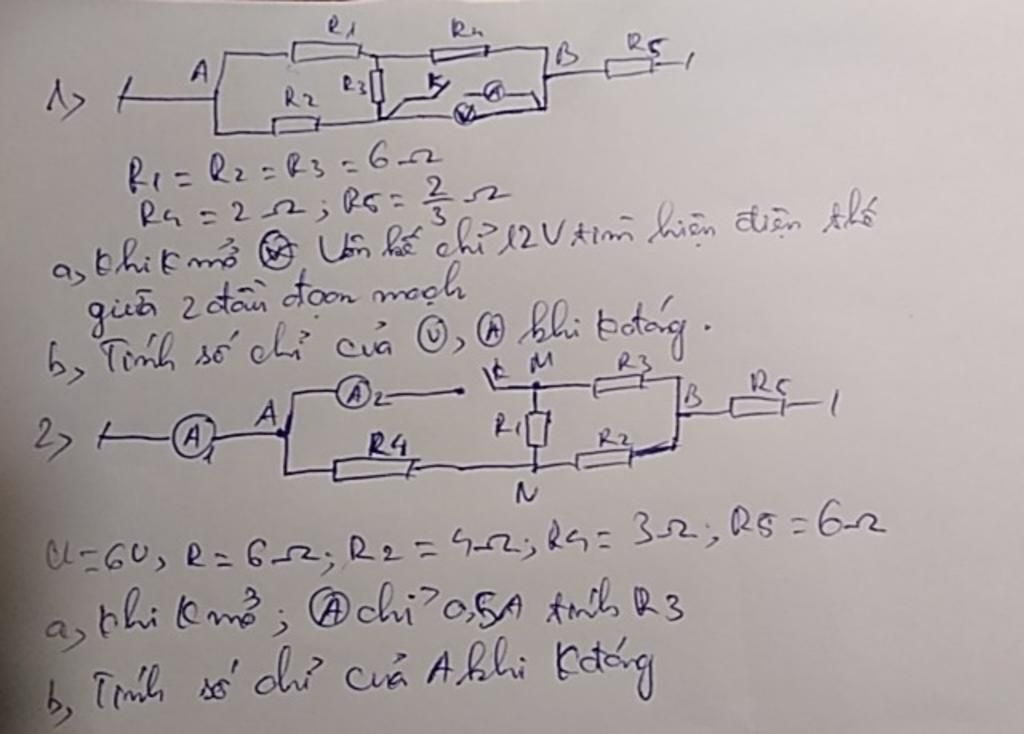 R1 R4
1> A R3 K A B R5
R2 V
R1 = R2 = R3 = 6Ω
R4 = 2Ω ; R5 = 2/3 Ω
a, Khi K mở Ⓥ Vôn kế chỉ 12V tìm hiện điện thế
giữa 2 đầu đoạn mạch
b, Tính số chỉ của Ⓥ, Ⓐ khi K đóng.
A A2 K M R3
2> A1 R1 B R5
R4 R2
N
U=6V, R = 6Ω; R2 = 4Ω; R4 = 3Ω; R5 = 6Ω
a, Khi K mở; Ⓐ chỉ 0,5A tính R3
b, Tính số chỉ của A khi K đóng